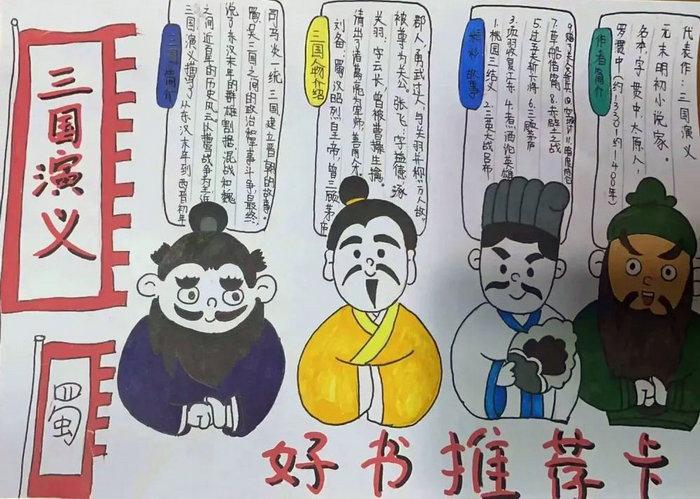 三国演义
蜀
三国简介
三国演义描写了从东汉末年到西晋初年
之间近百年的历史风云.以战争为主,近
说了东汉末年的群雄割据混战和魏
蜀吴三国之间的政治和军事斗争,最终,
司马炎一统三国,建立晋朝的故事。
三国人物介绍
刘备:蜀汉昭烈皇帝,曾三顾茅庐
请出了诸葛亮为军师.善用人才.
关羽:字云长,曾被曹操生擒.
被尊为关公.张飞:字益德,涿
郡人,勇武过人,与关羽并称"万人敌".
精彩故事
1.桃园三结义 2.三英大战吕布
收复江东 4.煮酒论英雄
5.过五关斩六将 6.三顾茅庐
7.草船借箭 8.赤壁之战
作者简介
罗贯中(约1330-约1400年)
名本,字贯中,太原人,
元末明初小说家。
代表作:三国演义
好书推荐卡